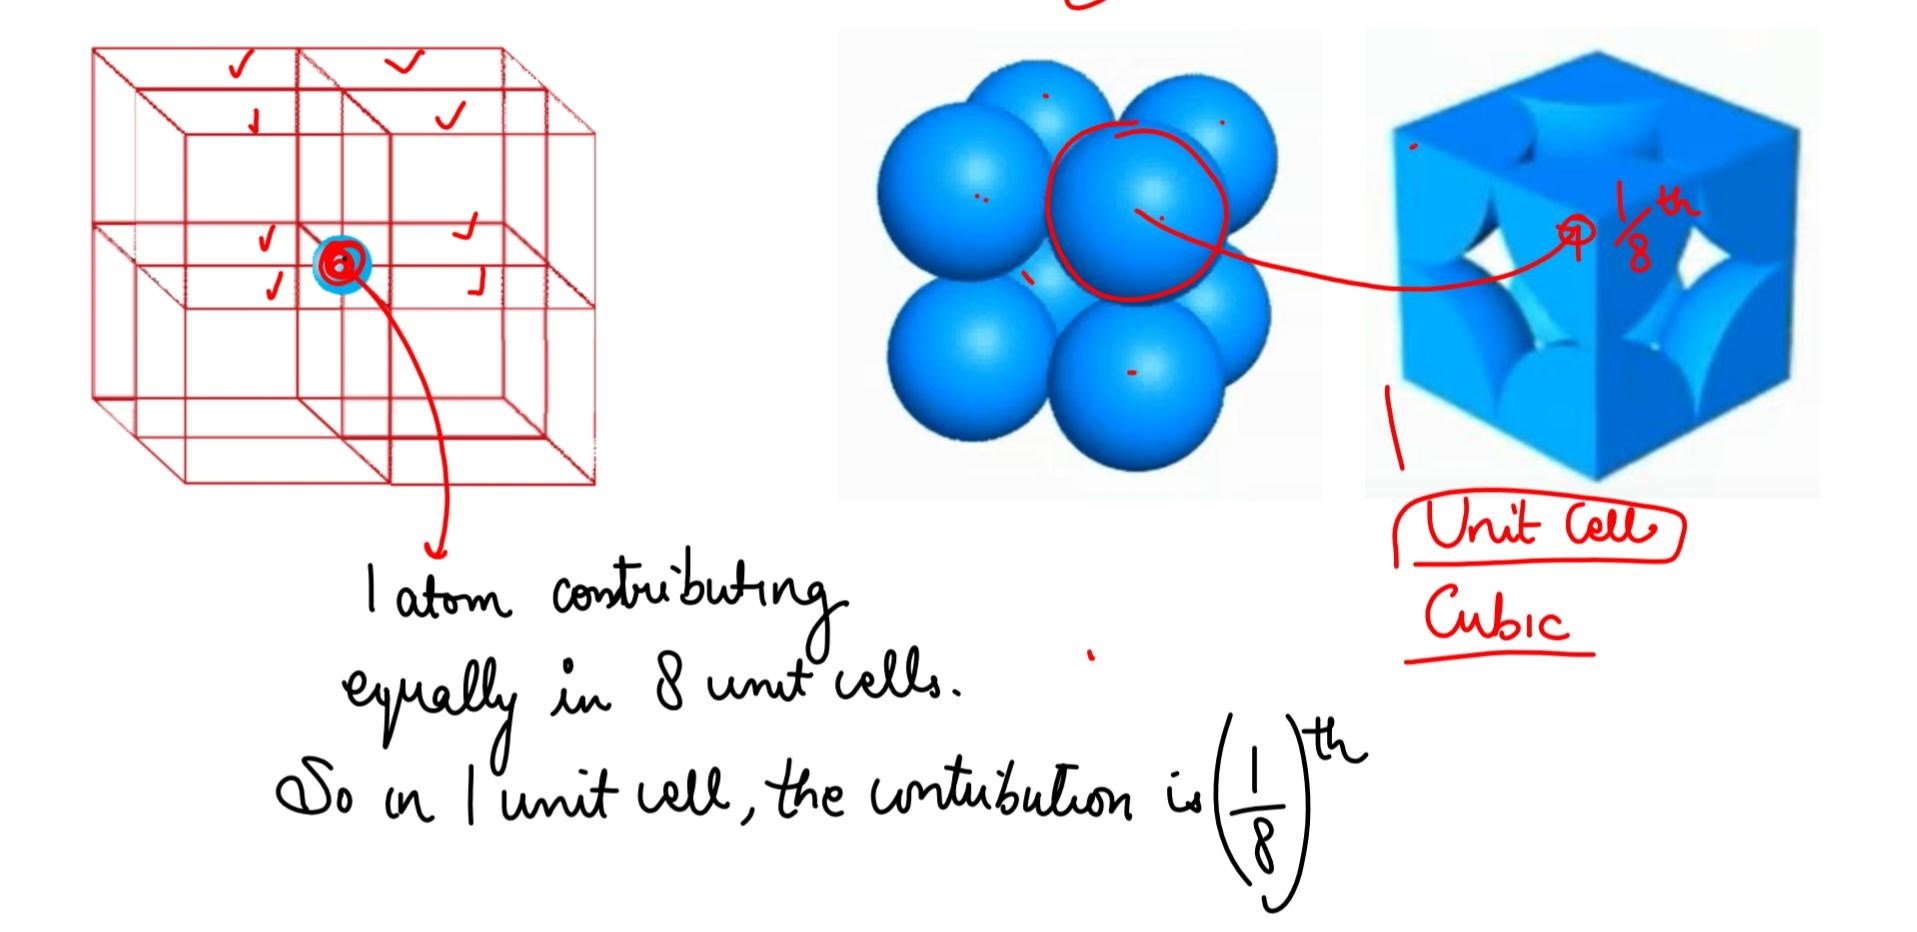 1/8 th
Unit Cell
Cubic
1 atom contributing
equally in 8 unit cells.
So in 1 unit cell, the contribution is (1/8)th